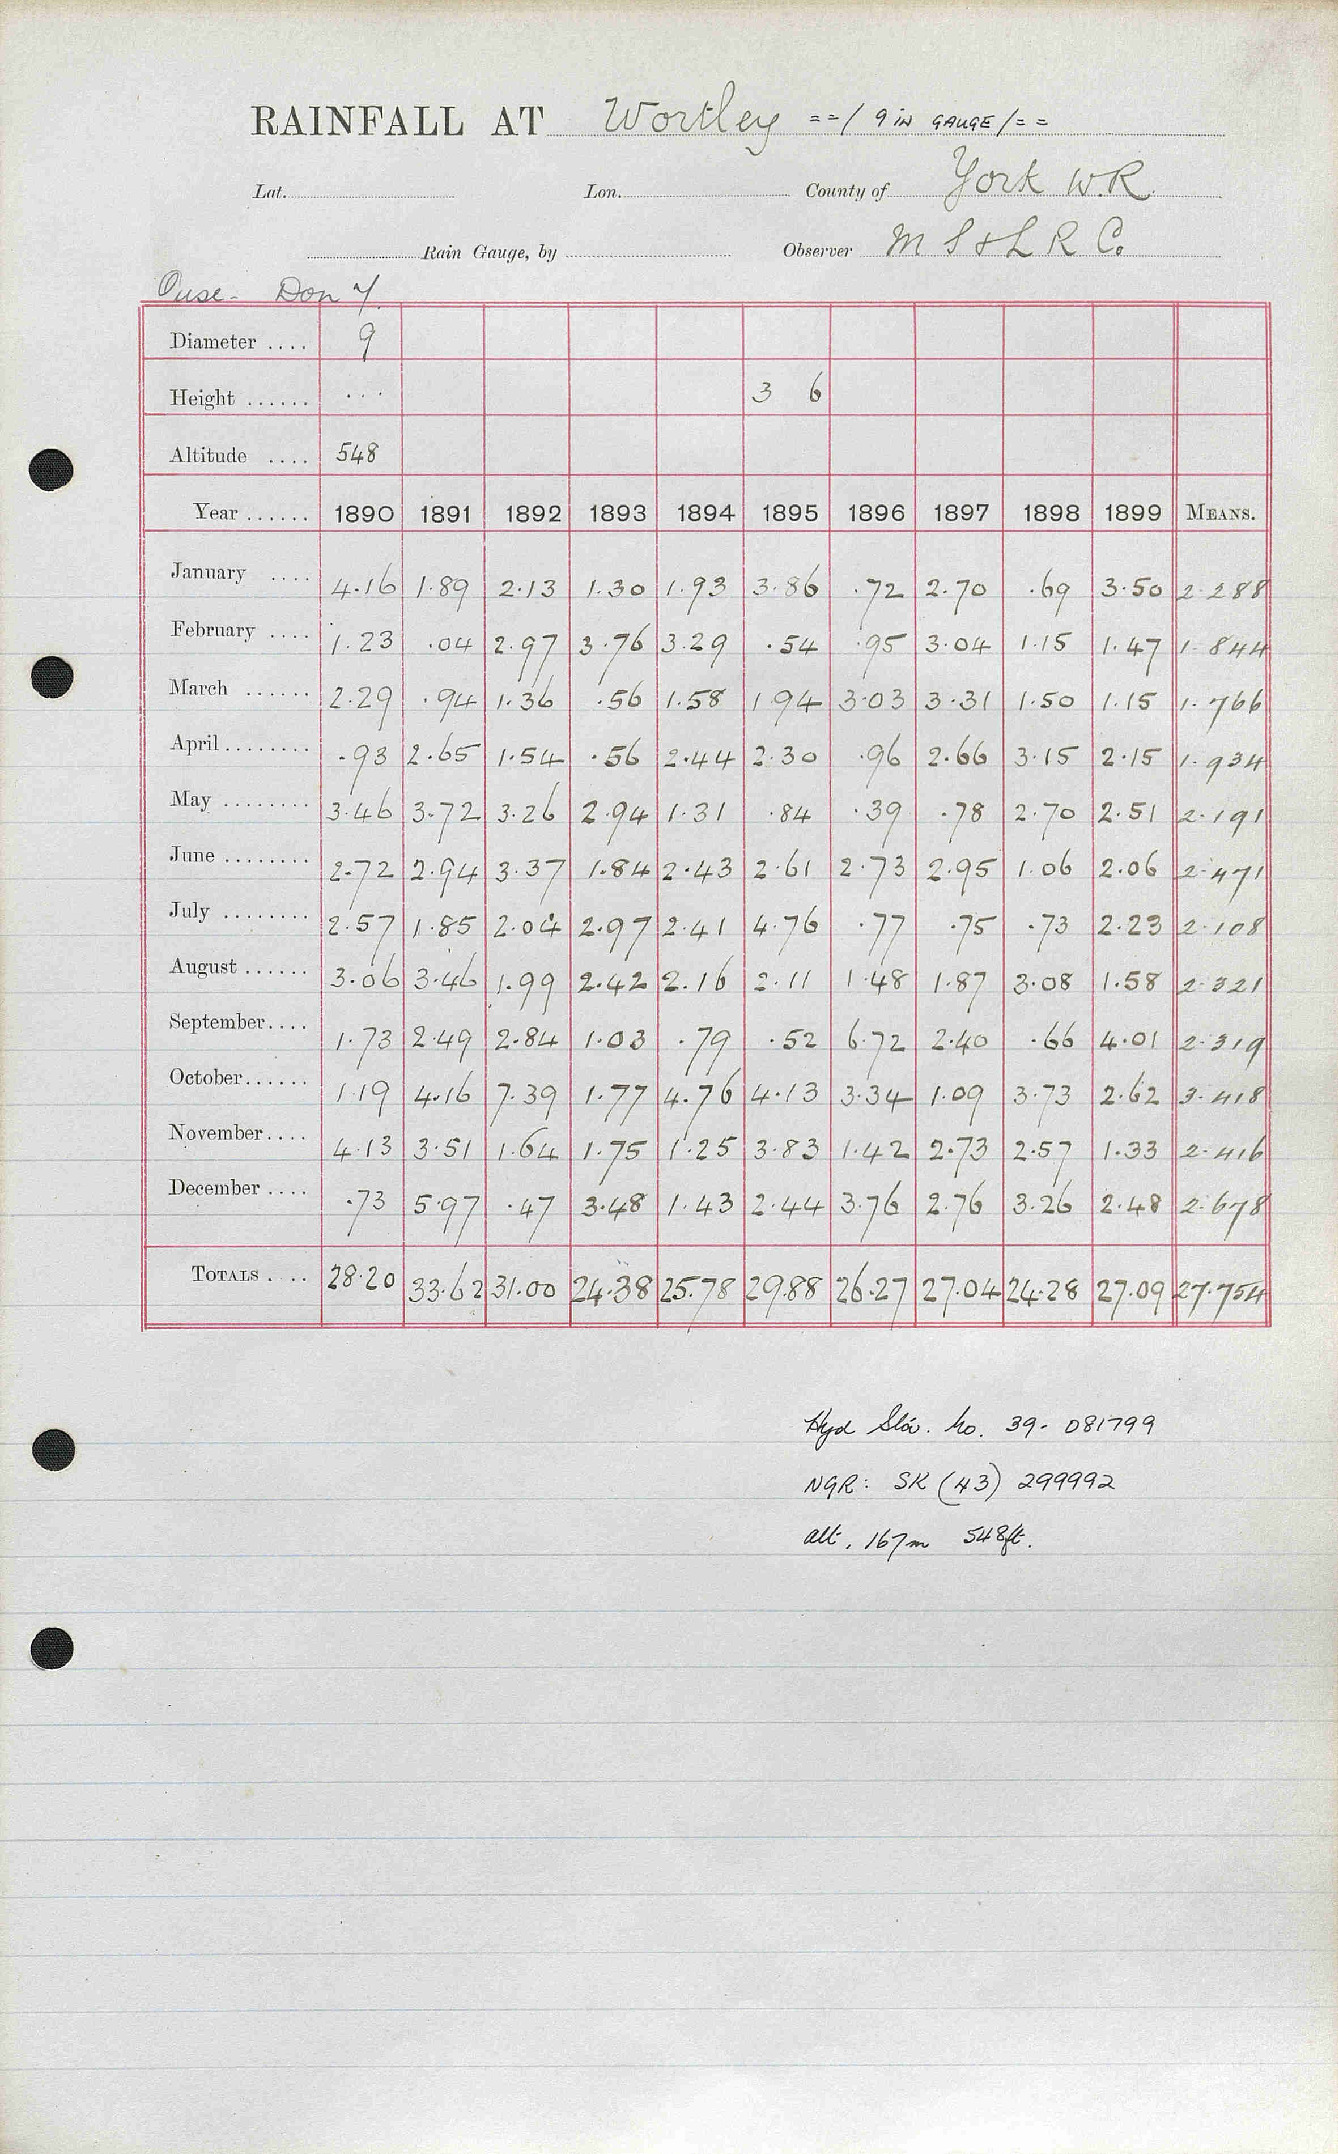 RAINFALL AT Wortley ==/ 9 in GAUGE /==
Lat. Lon. County of York W.R.
Rain Gauge, by Observer M S & L R Co.
Ouse - Don 7.
Diameter .... 9
Height ...... ... 3 6
Altitude .... 548
Year ...... 1890 1891 1892 1893 1894 1895 1896 1897 1898 1899 MEANS.
January .... 4.16 1.89 2.13 1.30 1.93 3.86 .72 2.70 .69 3.50 2.288
February .... 1.23 .04 2.97 3.76 3.29 .54 .95 3.04 1.15 1.47 1.844
March ...... 2.29 .94 1.36 .56 1.58 1.94 3.03 3.31 1.50 1.15 1.766
April ........ .93 2.65 1.54 .56 2.44 2.30 .96 2.66 3.15 2.15 1.934
May ........ 3.46 3.72 3.26 2.94 1.31 .84 .39 .78 2.70 2.51 2.191
June ........ 2.72 2.94 3.37 1.84 2.43 2.61 2.73 2.95 1.06 2.06 2.471
July ........ 2.57 1.85 2.04 2.97 2.41 4.76 .77 .75 .73 2.23 2.108
August ...... 3.06 3.46 1.99 2.42 2.16 2.11 1.48 1.87 3.08 1.58 2.321
September.... 1.73 2.49 2.84 1.03 .79 .52 6.72 2.40 .66 4.01 2.319
October...... 1.19 4.16 7.39 1.77 4.76 4.13 3.34 1.09 3.73 2.62 3.418
November.... 4.13 3.51 1.64 1.75 1.25 3.83 1.42 2.73 2.57 1.33 2.416
December .... .73 5.97 .47 3.48 1.43 2.44 3.76 2.76 3.26 2.48 2.678
TOTALS .... 28.20 33.62 31.00 24.38 25.78 29.88 26.27 27.04 24.28 27.09 27.754
Hyd Sta. No. 39- 081799
NGR: SK (43) 299992
alt. 167m 548ft.